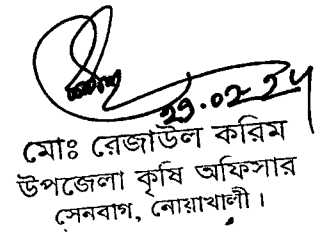 29.02.24
মোঃ রেজাউল করিম
উপজেলা কৃষি অফিসার
সেনবাগ, নোয়াখালী।